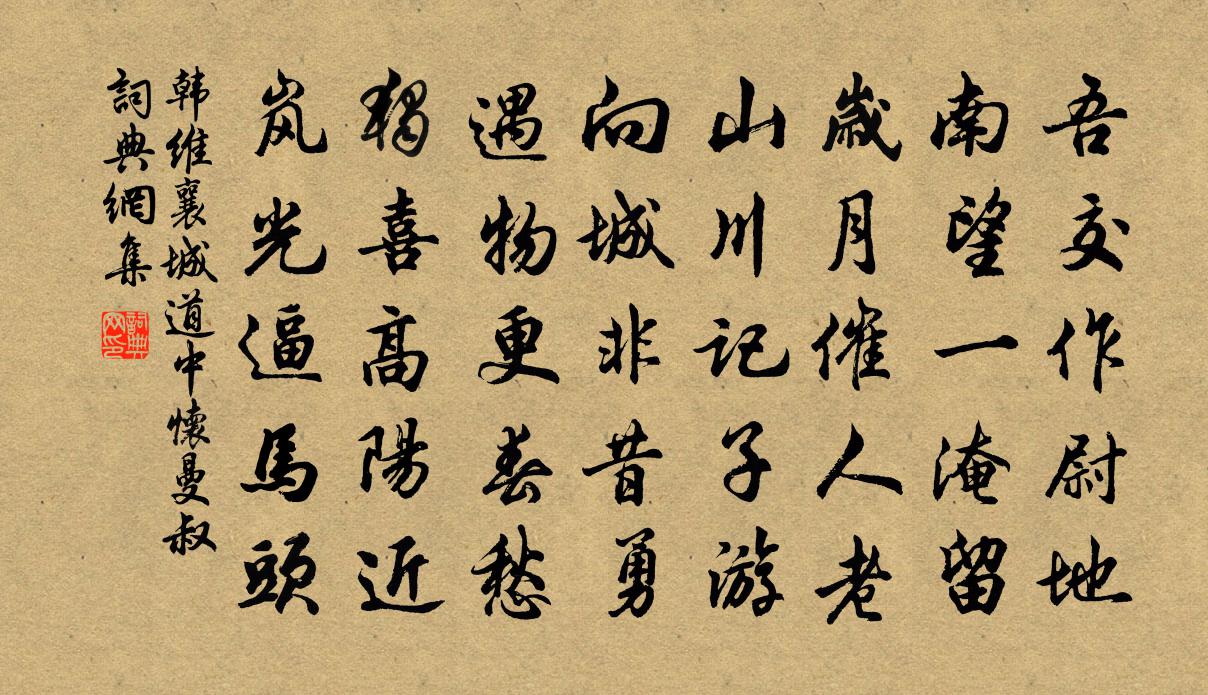 吾交作尉地
南望一淹留
歳月催人老
山川记子游
向城非昔勇
遇物更春愁
独喜高陽近
岚光逼馬頭
韩维襄城道中懷曼叔
詞典網集
詞典网印